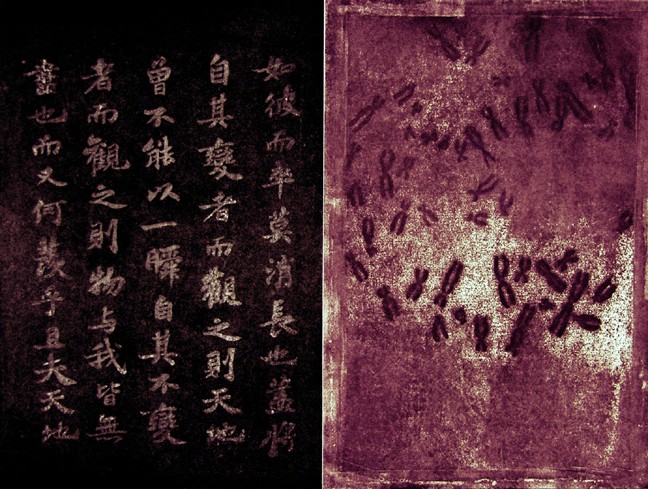 如彼而卒莫消長也蓋將
自其變者而觀之則天地
曾不能以一瞬自其不變
者而觀之則物与我皆無
盡也而又何羨乎且夫天地